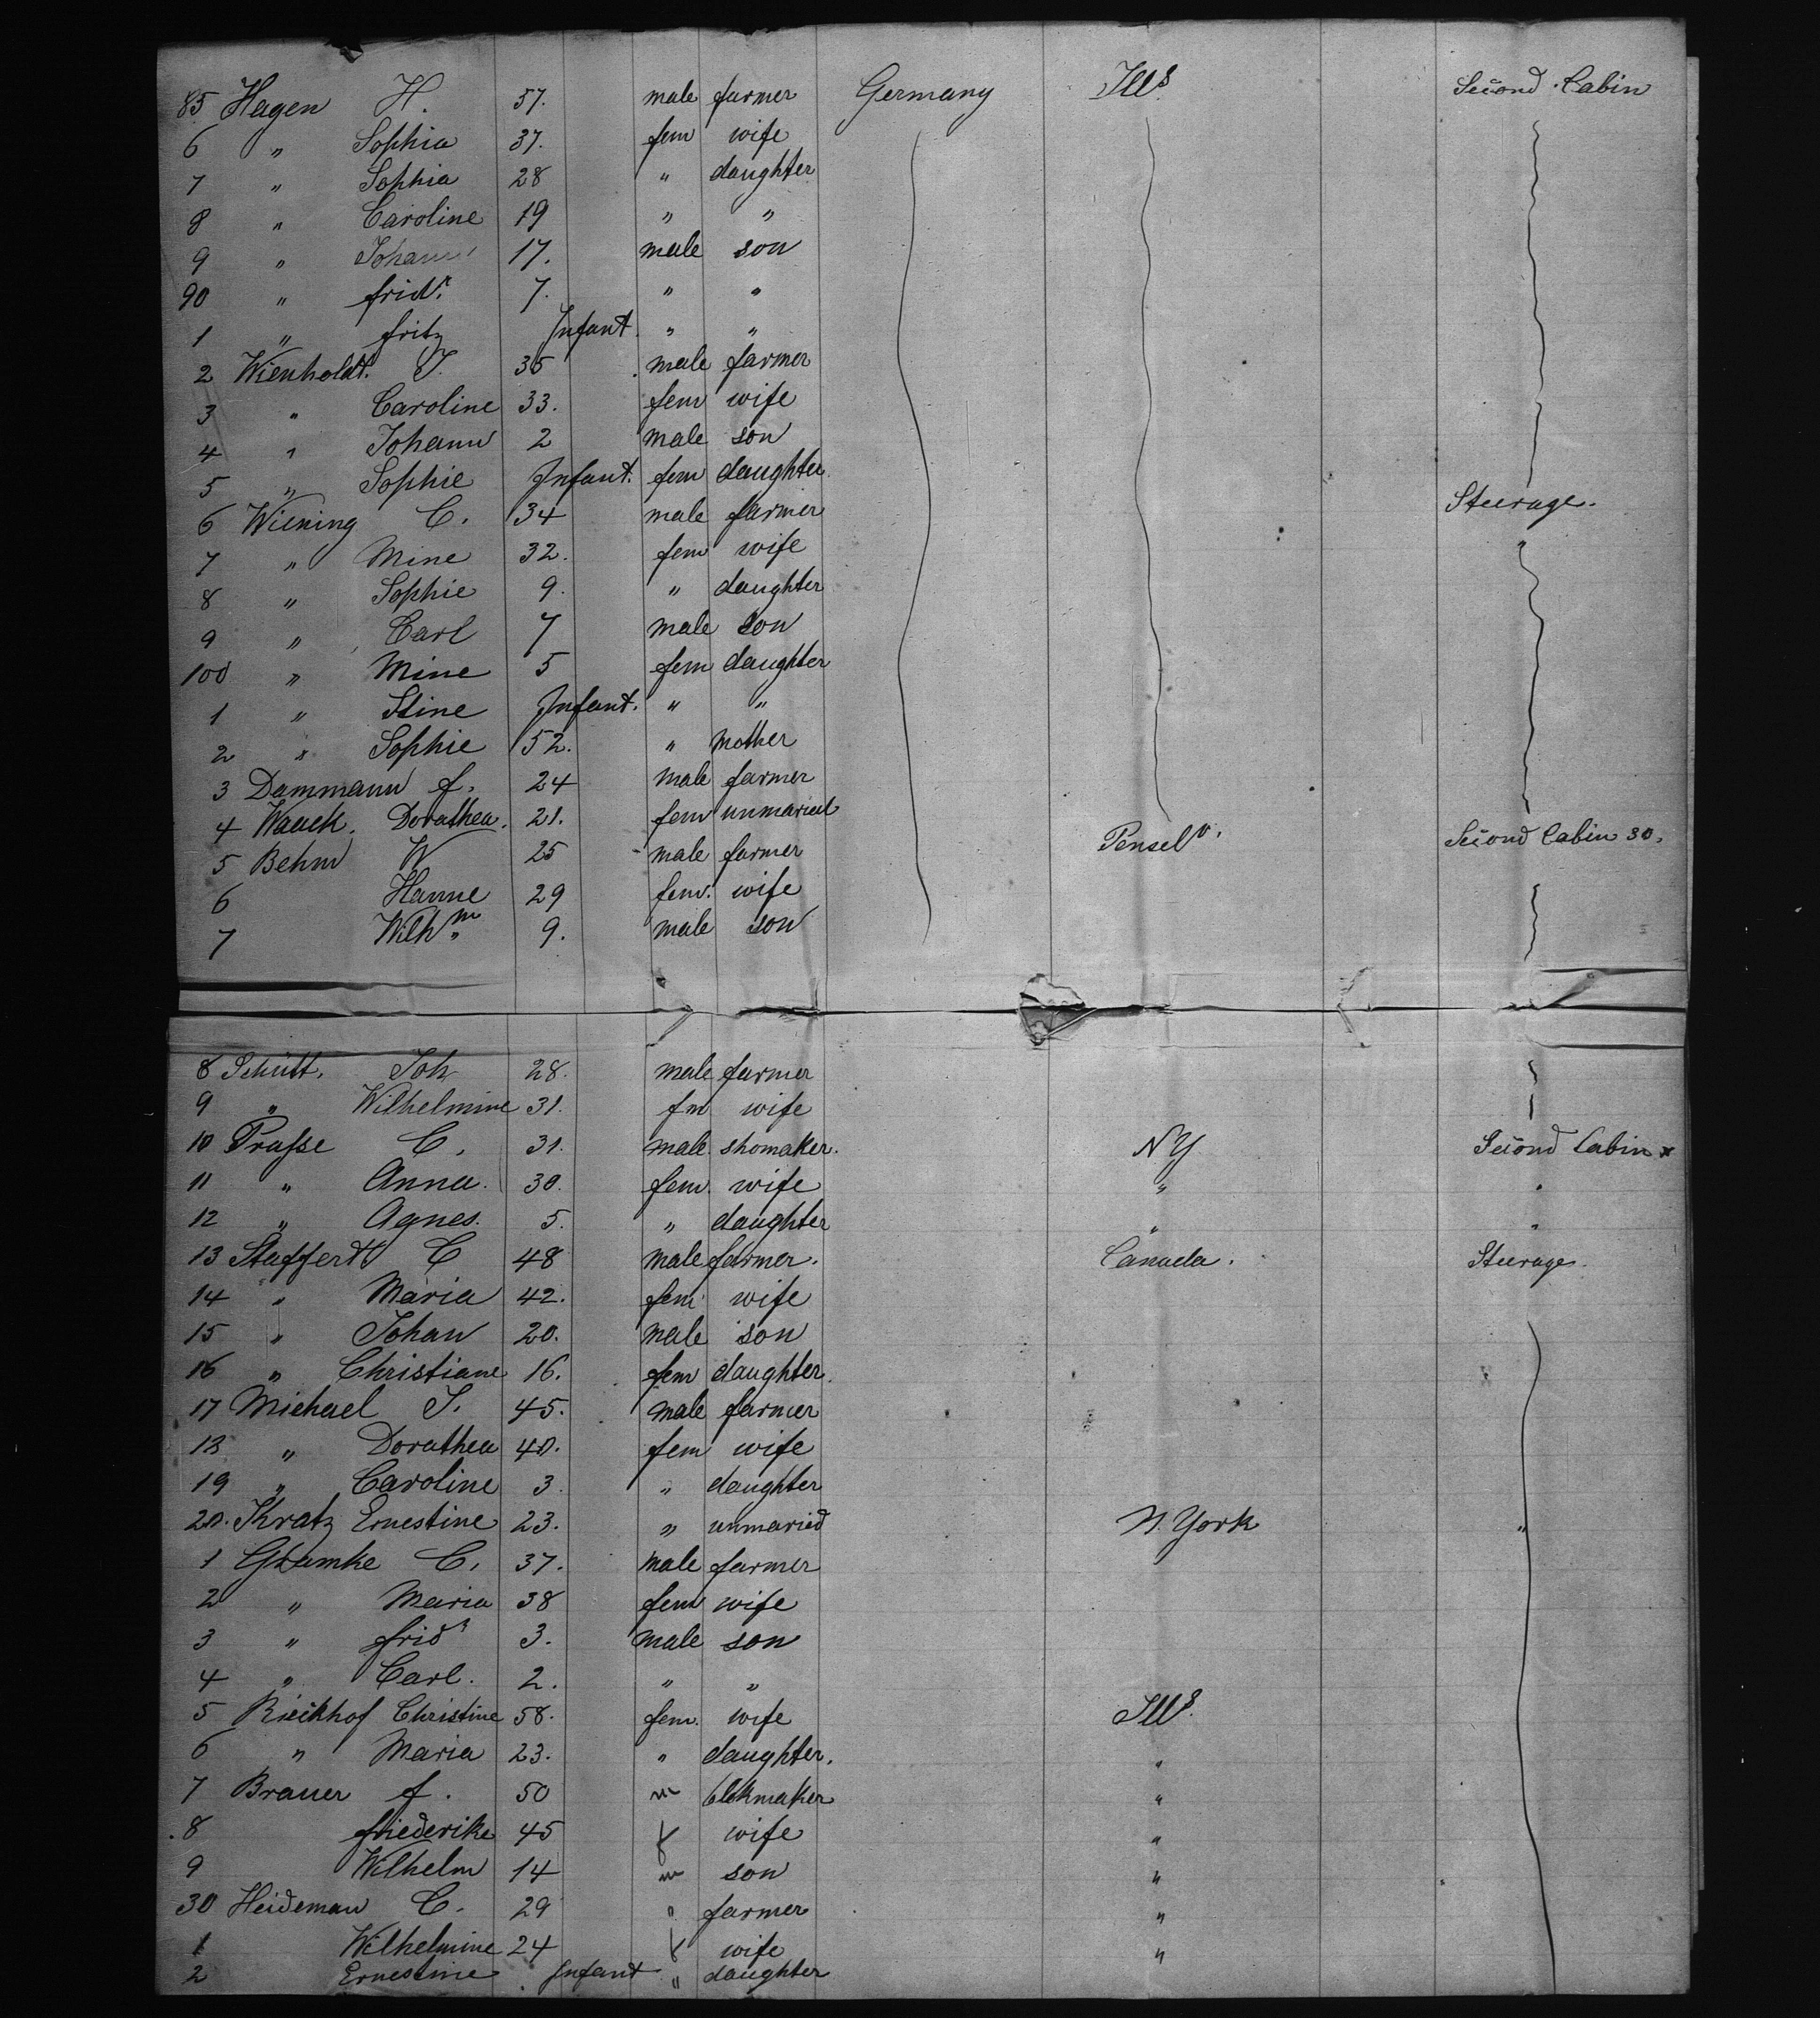 85 Hagen H. 57. male farmer Germany Ills. Second Cabin
6 " Sophia 37. fem wife
7 " Sophia 28 " daughter
8 " Caroline 19 " "
9 " Johann 17. male son
90 " fridr. 7. " "
1 " fritz Infant. " "
2 Wienholdt. J. 35 male farmer
3 " Caroline 33. fem wife
4 " Johann 2 male son
5 " Sophie Infant. fem daughter
6 Wiening C. 34 male farmer Steerage.
7 " Mine 32. fem wife "
8 " Sophie 9. " daughter
9 " Carl 7 male son
100 " Mine 5 fem daughter
1 " Stine Infant. " "
2 " Sophie 52. " mother
3 Dammann f. 24 male farmer
4 Waack. Dorathea. 21. fem unmaried
5 Behm W 25 male farmer Penselv. Second Cabin 30.
6 Hanne 29 fem. wife
7 Wilhm 9. male son
8 Schütt. Joh 28. male farmer
9 " Wilhelmine 31. fm wife
10 Prasse C. 31. male shomaker. NY Second Cabin
11 " Anna. 30. fem. wife " "
12 " Agnes. 5. " daughter " "
13 Stafferdt C 48 male farmer. Canada. Steerage.
14 " Maria 42. fem wife
15 " Johan 20. male son
16 " Christiane 16. fem daughter.
17 Michael J. 45. male farmer
18 " Dorathea 40. fem wife
19 " Caroline 3. " daughter
20. Kratz Ernestine 23. " unmaried N. York "
1 C. 37. male farmer
2 " Maria 38 fem wife
3 " frid 3. male son
4 " Carl. 2. " "
5 Rieckhof Christine 58. fem. wife Ills.
6 " Maria 23. " daughter. "
7 Brauer f. 50 m clokmaker "
8 friederike 45 f wife "
9 Wilhelm 14 m son "
30 Heideman C. 29 " farmer "
1 Wilhelmine 24 f wife "
2 Ernestine Infant " daughter